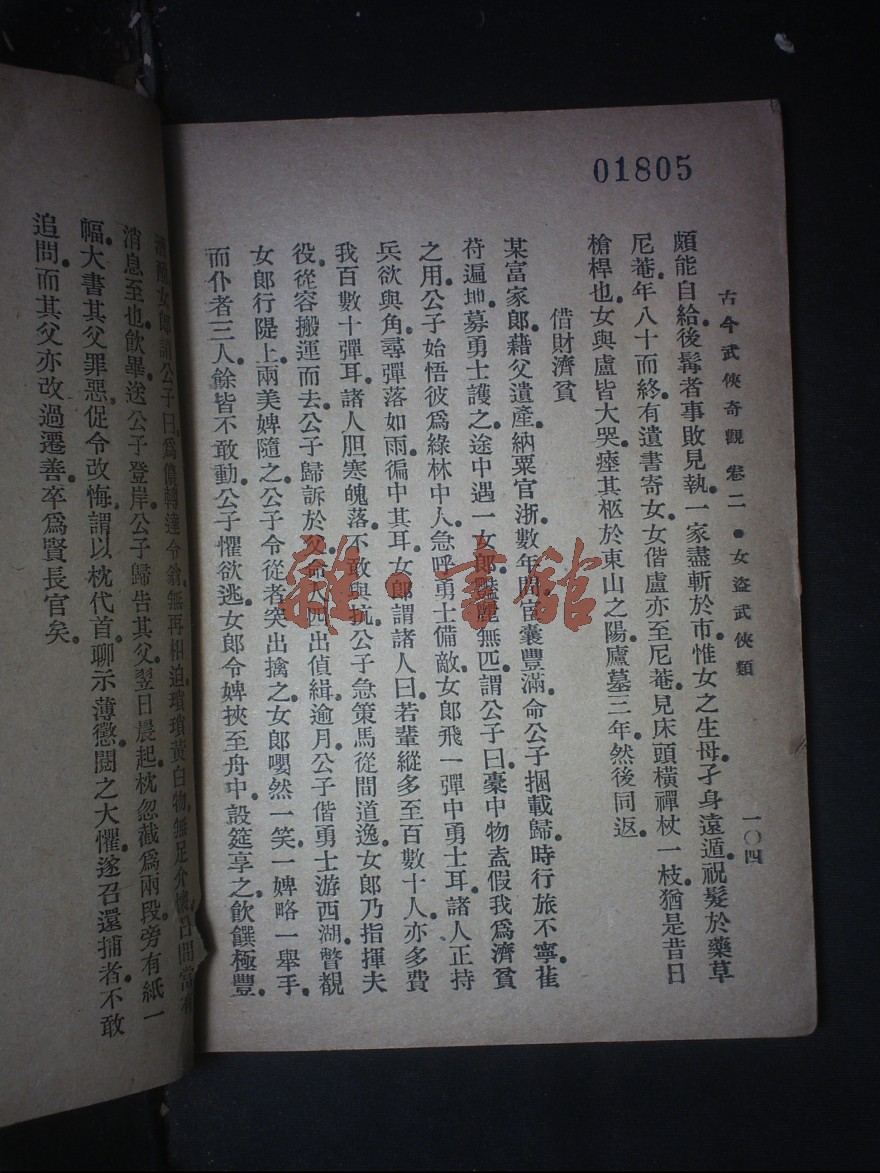 01805
古今武俠奇觀 卷二 ●女盜武俠類 一〇四
頗能自給●後髯者事敗見執●一家盡斬於市●惟女之生母●孑身遠遁●祝髮於藥草
尼菴●年八十而終●有遺書寄女●女偕盧亦至尼菴●見床頭橫禪杖一枝●猶是昔日
槍桿也●女與盧皆大哭●瘞其柩於東山之陽●廬墓三年●然後同返●
借財濟貧
某富家郎●藉父遺產●納粟官浙●數年間●宦囊豐滿●命公子捆載歸●時行旅不寧●萑
苻遍地●募勇士護之●途中遇一女郎●豔麗無匹●謂公子曰●橐中物盍假我爲濟貧
之用●公子始悟彼爲綠林中人●急呼勇士備敵●女郎飛一彈中勇士耳●諸人正持
兵欲與角●尋彈落如雨●徧中其耳●女郎謂諸人曰●若輩縱多至百數十人●亦多費
我百數十彈耳●諸人胆寒魄落●不敢與抗●公子急策馬從間道逸●女郎乃指揮夫
役●從容搬運而去●公子歸訴於父●命人四出偵緝●逾月●公子偕勇士游西湖●瞥覩
女郎行隄上●兩美婢隨之●公子令從者突出擒之●女郎嚶然一笑●一婢略一舉手●
而仆者三人●餘皆不敢動●公子懼欲逃●女郎令婢挾至舟中●設筵享之●飲饌極豐●
女郎謂公子曰●爲儂轉達令翁●無再相迫●瑣瑣黃白物●無足介懷●日間當有
消息至也●飲畢●送公子登岸●公子歸告其父●翌日晨起●枕忽截爲兩段●旁有紙一
幅●大書其父罪惡●促令改悔●謂以枕代首●聊示薄懲●閱之大懼●遂召還捕者●不敢
追問●而其父亦改過遷善●卒爲賢長官矣●
雜·書館